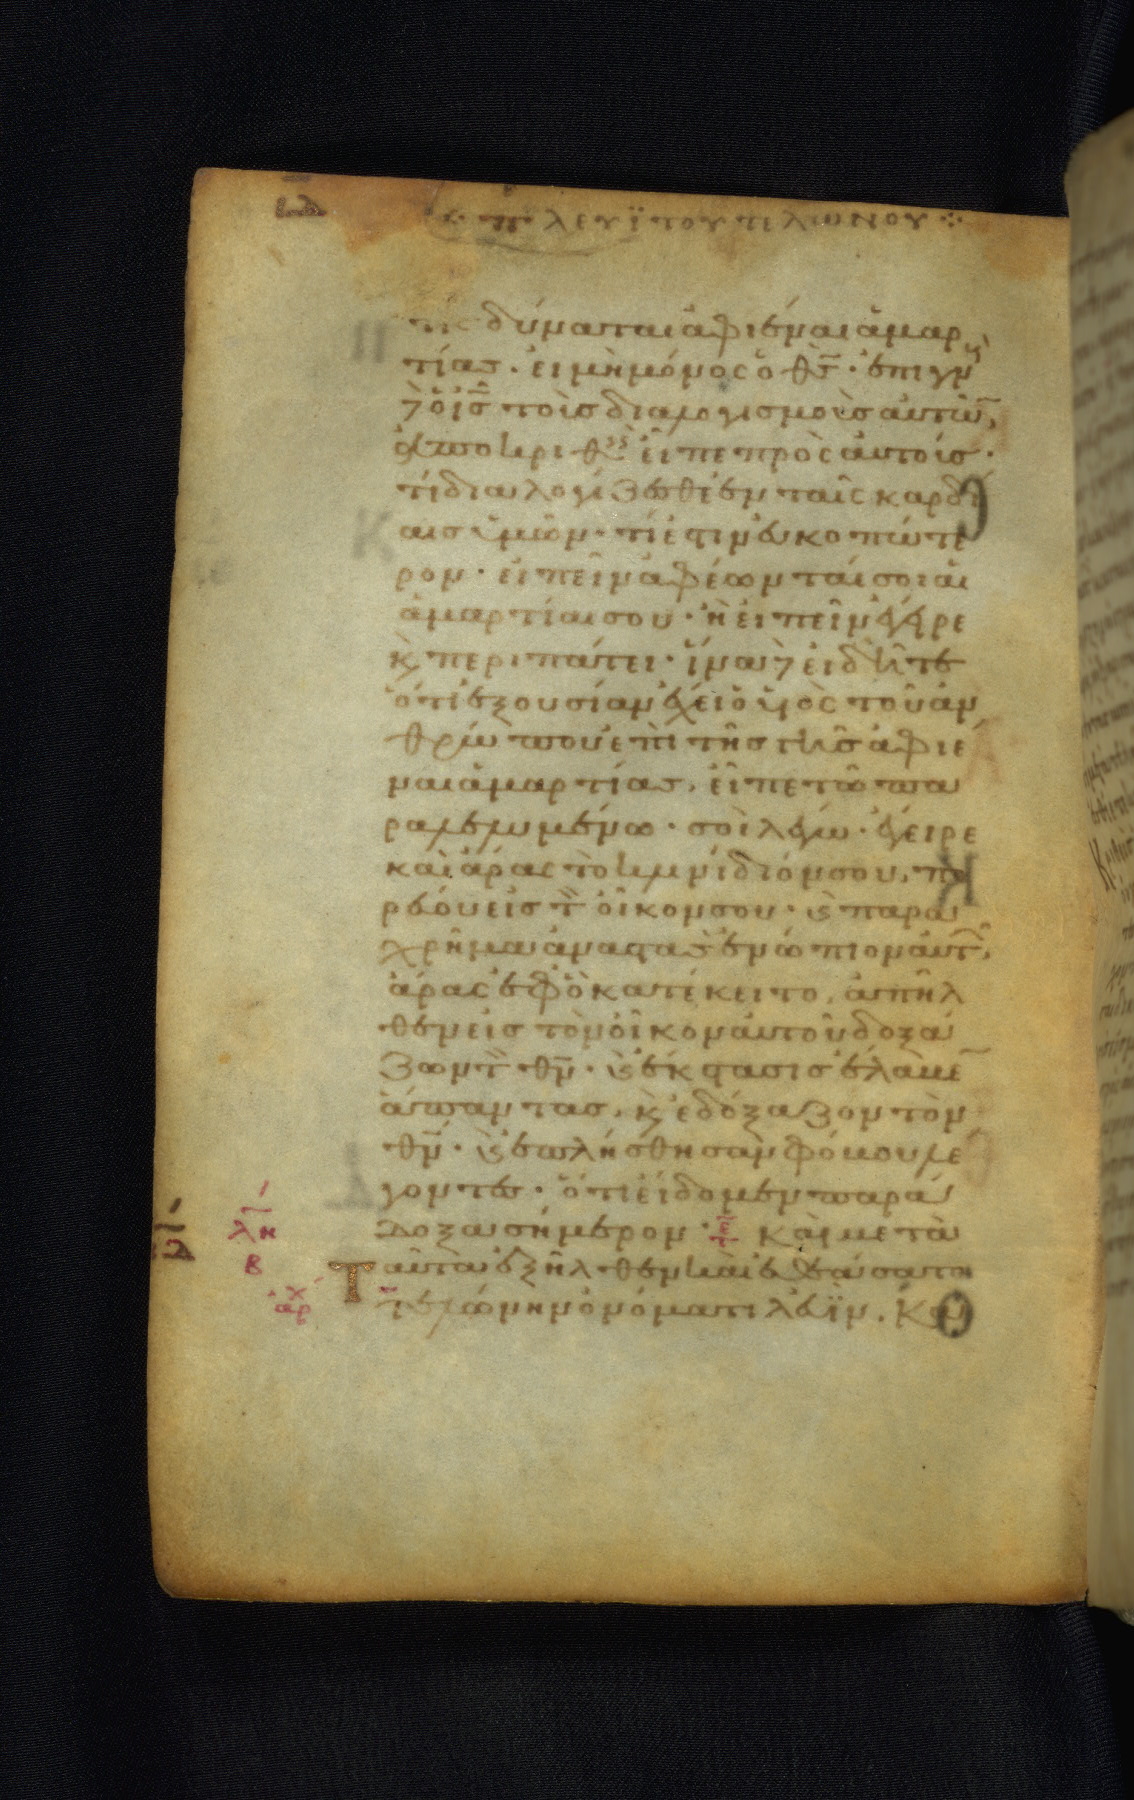 ΙΔ
π λευϊ του τελωνου
τίς δύναται ἀφιέναι ἁμαρ
τίας · εἰ μὴ μόνος ὁ θς · ἐπιγν
δὲ ὁ ις τοὺς διαλογισμοὺς αὐτῶν,
ἀποκριθεὶς εἶπε πρὸς αὐτούς ·
τί διαλογίζεσθε ἐν ταῖς καρδί
αις ὑμῶν · τί ἐστιν εὐκοπώτε
ρον · εἰπεῖν ἀφέωνταί σοι αἱ
ἁμαρτίαι σου · ἢ εἰπεῖν ἔγειρε
κ περιπάτει · ἵνα δὲ εἰδῆτε
ὅτι ἐξουσίαν ἔχει ὁ υἱὸς τοῦ ἀν
θρώπου ἐπὶ τῆς γῆς ἀφιέ
ναι ἁμαρτίας, εἶπε τῶ πα
ραλελυμένω · σοὶ λέγω · ἔγειρε
καὶ ἄρας τὸ κλινίδιόν σου, πο
ρεύου εἰς τ οἶκον σου · κ παρα
χρῆμα ἀναστὰς ἐνώπιον αὐτ,
ἄρας ἐφ ὃ κατέκειτο, ἀπῆλ
θεν εἰς τὸν οἶκον αὐτοῦ δοξά
ζων τ θν · κ ἔκστασις ἔλαβε
ἅπαντας, κ ἐδόξαζον τὸν
θν · κ ἐπλήσθησαν φόβου λέ
γοντες · ὅτι εἴδομεν παρά
δοξα σήμερον · καὶ μετὰ
λη
β
ΙΔ
ταῦτα ἐξῆλθεν καὶ ἐθεάσατο
αρχ
τελώνην ὀνόματι λευϊν · κα